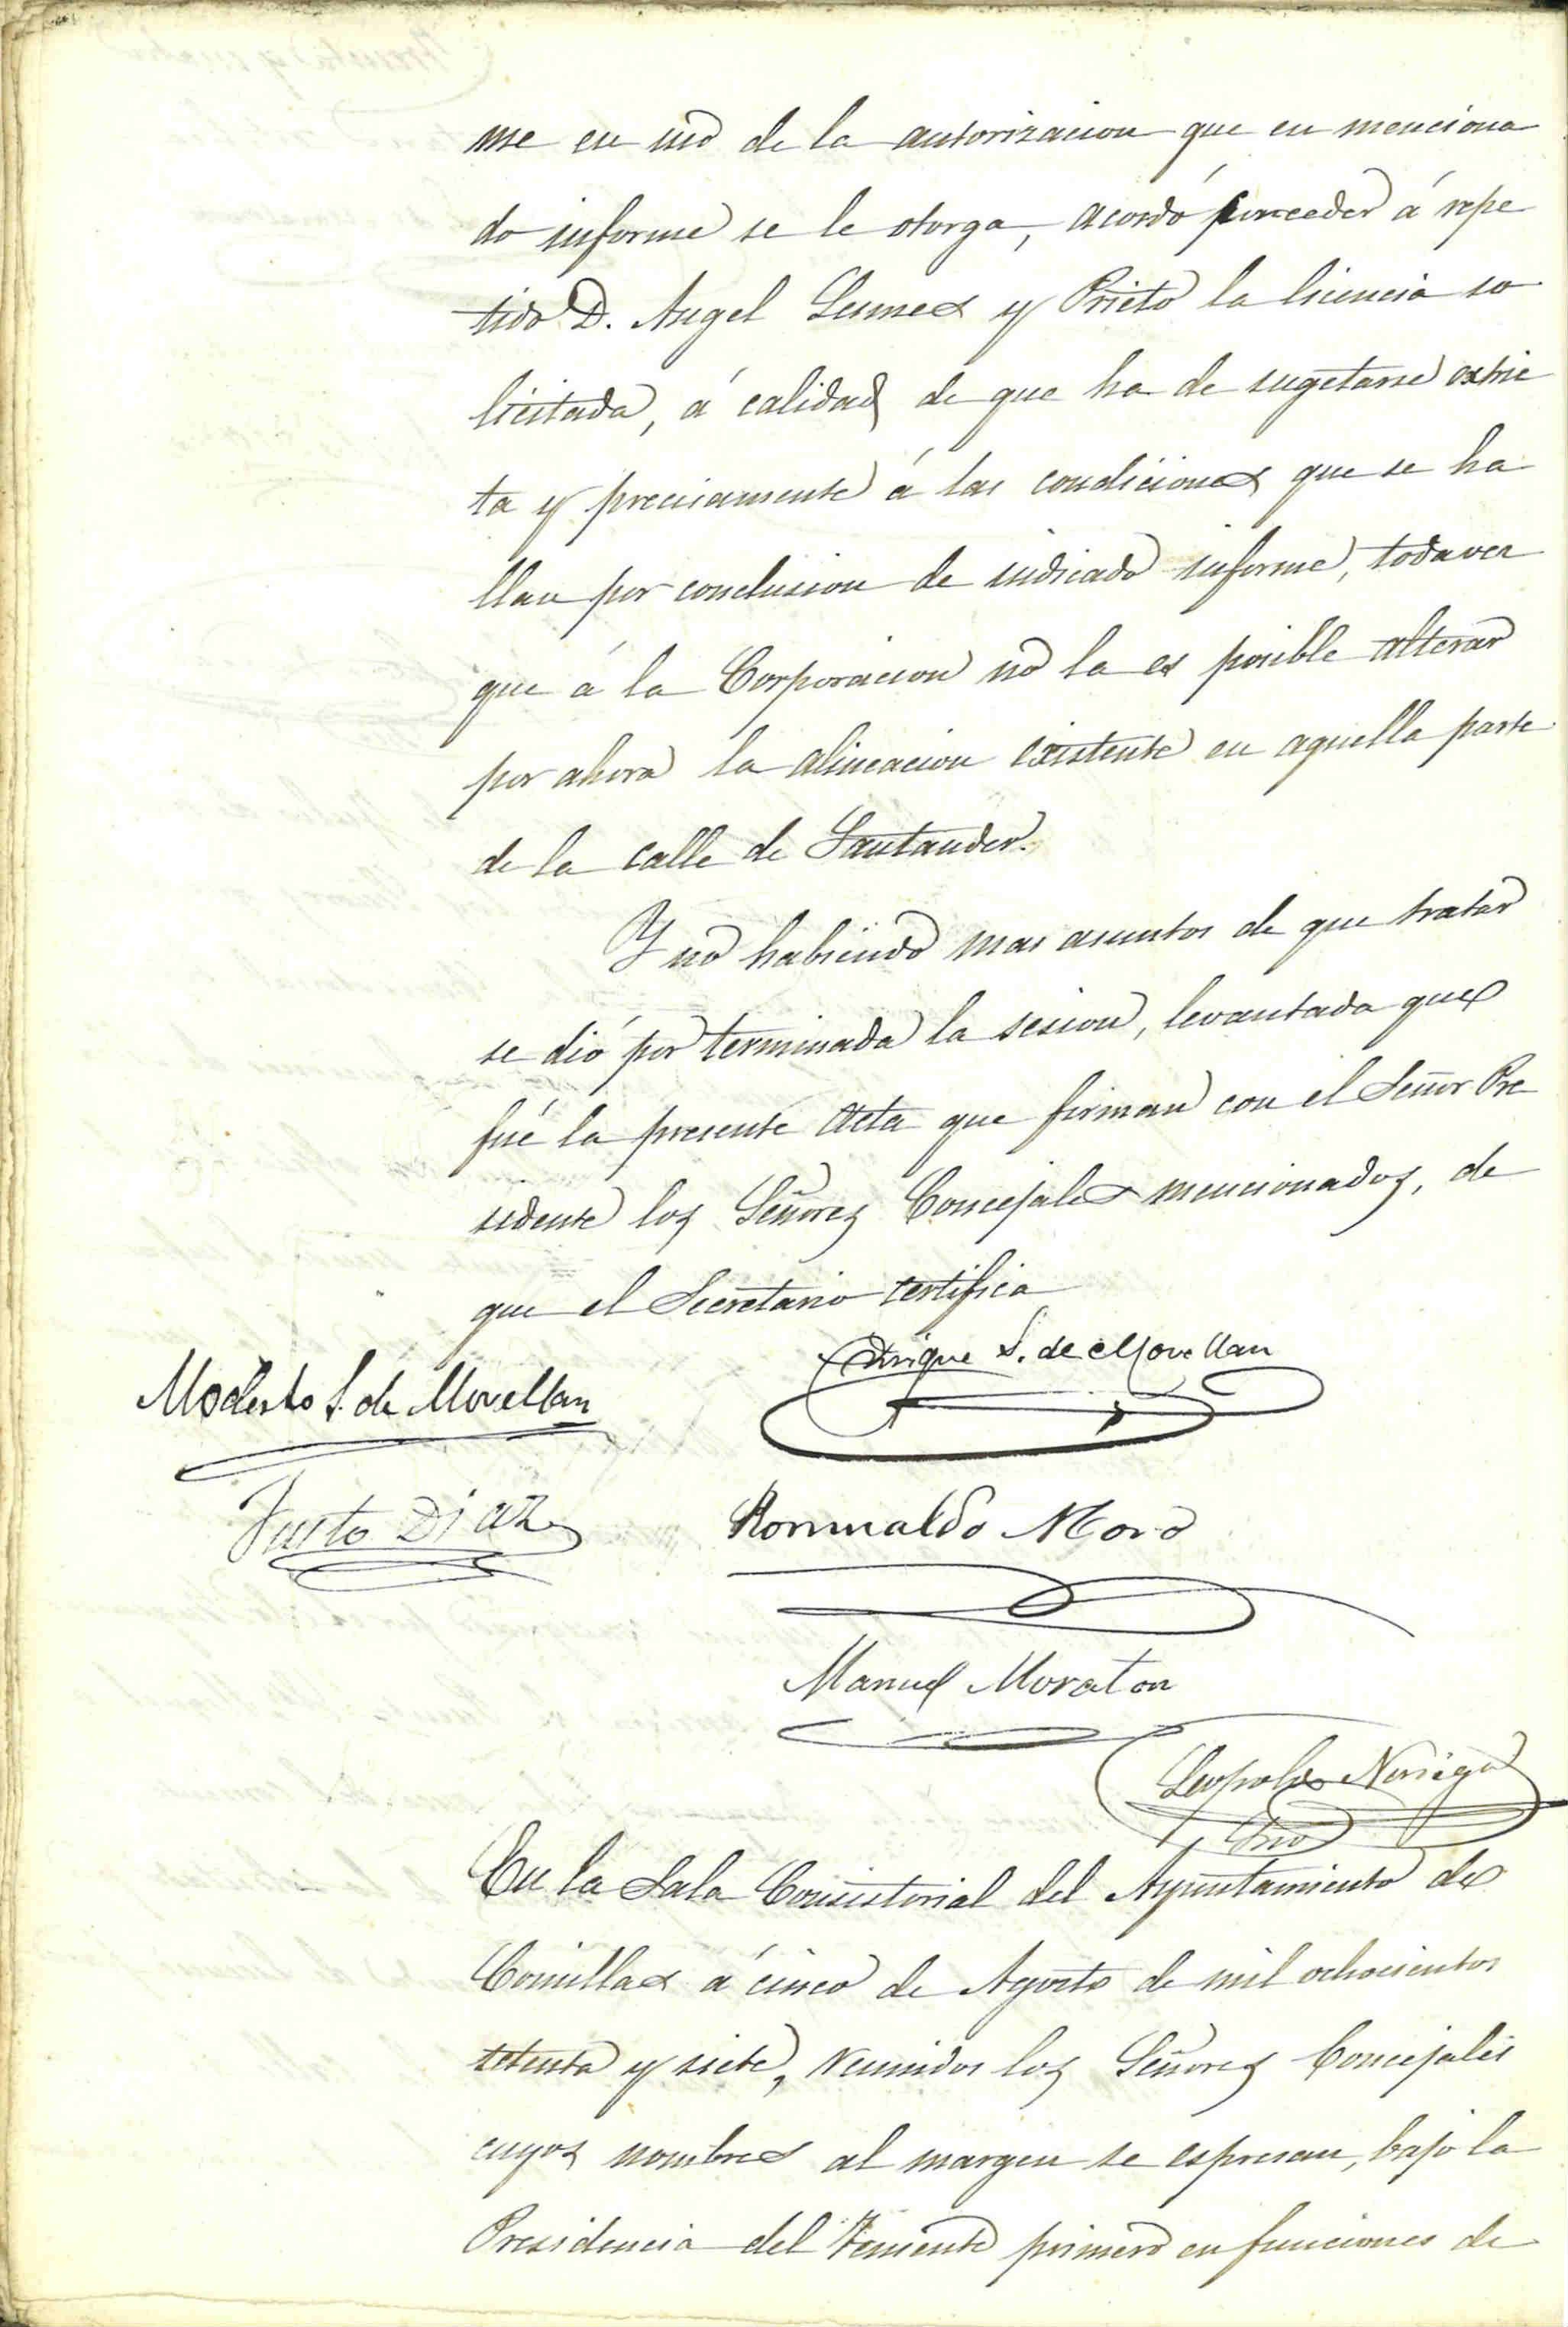 me en uso de la autorizacion que en menciona
do informe se le otorga, acordó conceder á repe
tido D. Angel Lumes y Prieto la licencia so
licitada, á calidad de que ha de sugetarse extric
ta y precisamente á las condiciones que se ha
llan por conclusion de indicado informe, toda vez
que á la Corporacion no la es posible alterar
por ahora la alineacion existente en aquella parte
de la calle de Santander.
Y no habiendo mas asuntos de que tratar
se dió por terminada la sesion, levantada que
fué la presente Acta que firman con el Señor Pre
sidente los Señores Concejales mencionados, de
que el Secretario certifica
Enrique S. de Movellan
Modesto S. de Movellan
Justo Diaz
Romualdo Moro
Manuel Moraton
Leopoldo Noriega
Srio
En la Sala Consistorial del Ayuntamiento de
Comillas á cinco de Agosto de mil ochocientos
setenta y siete, reunidos los Señores Concejales
cuyos nombres al margen se espresan, bajo la
Presidencia del Teniente primero en funciones de